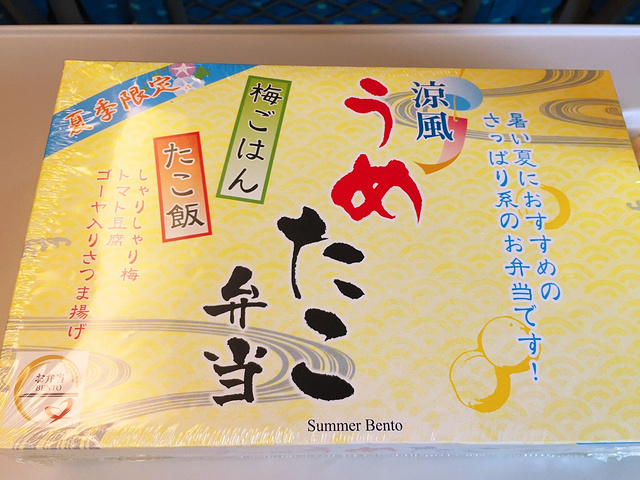 夏季限定
涼風
うめ
たこ
弁当
暑い夏におすすめの
さっぱり系のお弁当です!
梅ごはん
たこ飯
しゃりしゃり梅
トマト豆腐
ゴーヤ入りさつま揚げ
お弁当
BENTO
Summer Bento